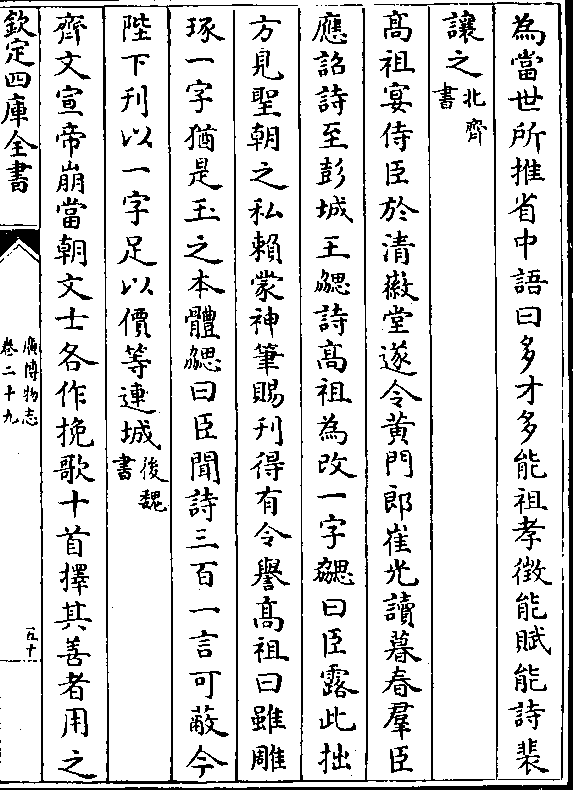 為當世所推省中語曰多才多能祖孝徵能賦能詩裴
讓之北齊書
髙祖宴侍臣於清徽堂遂令黄門郎崔光讀暮春羣臣
應詔詩至彭城王勰詩髙祖為改一字勰曰臣露此拙
方見聖朝之私賴蒙神筆賜刋得有令譽髙祖曰雖雕
琢一字猶是玉之本體勰曰臣聞詩三百一言可蔽今
陛下刋以一字足以價等連城後魏書
齊文宣帝崩當朝文士各作挽歌十首擇其善者用之
欽定四庫全書
廣博物志
卷二十九
五十